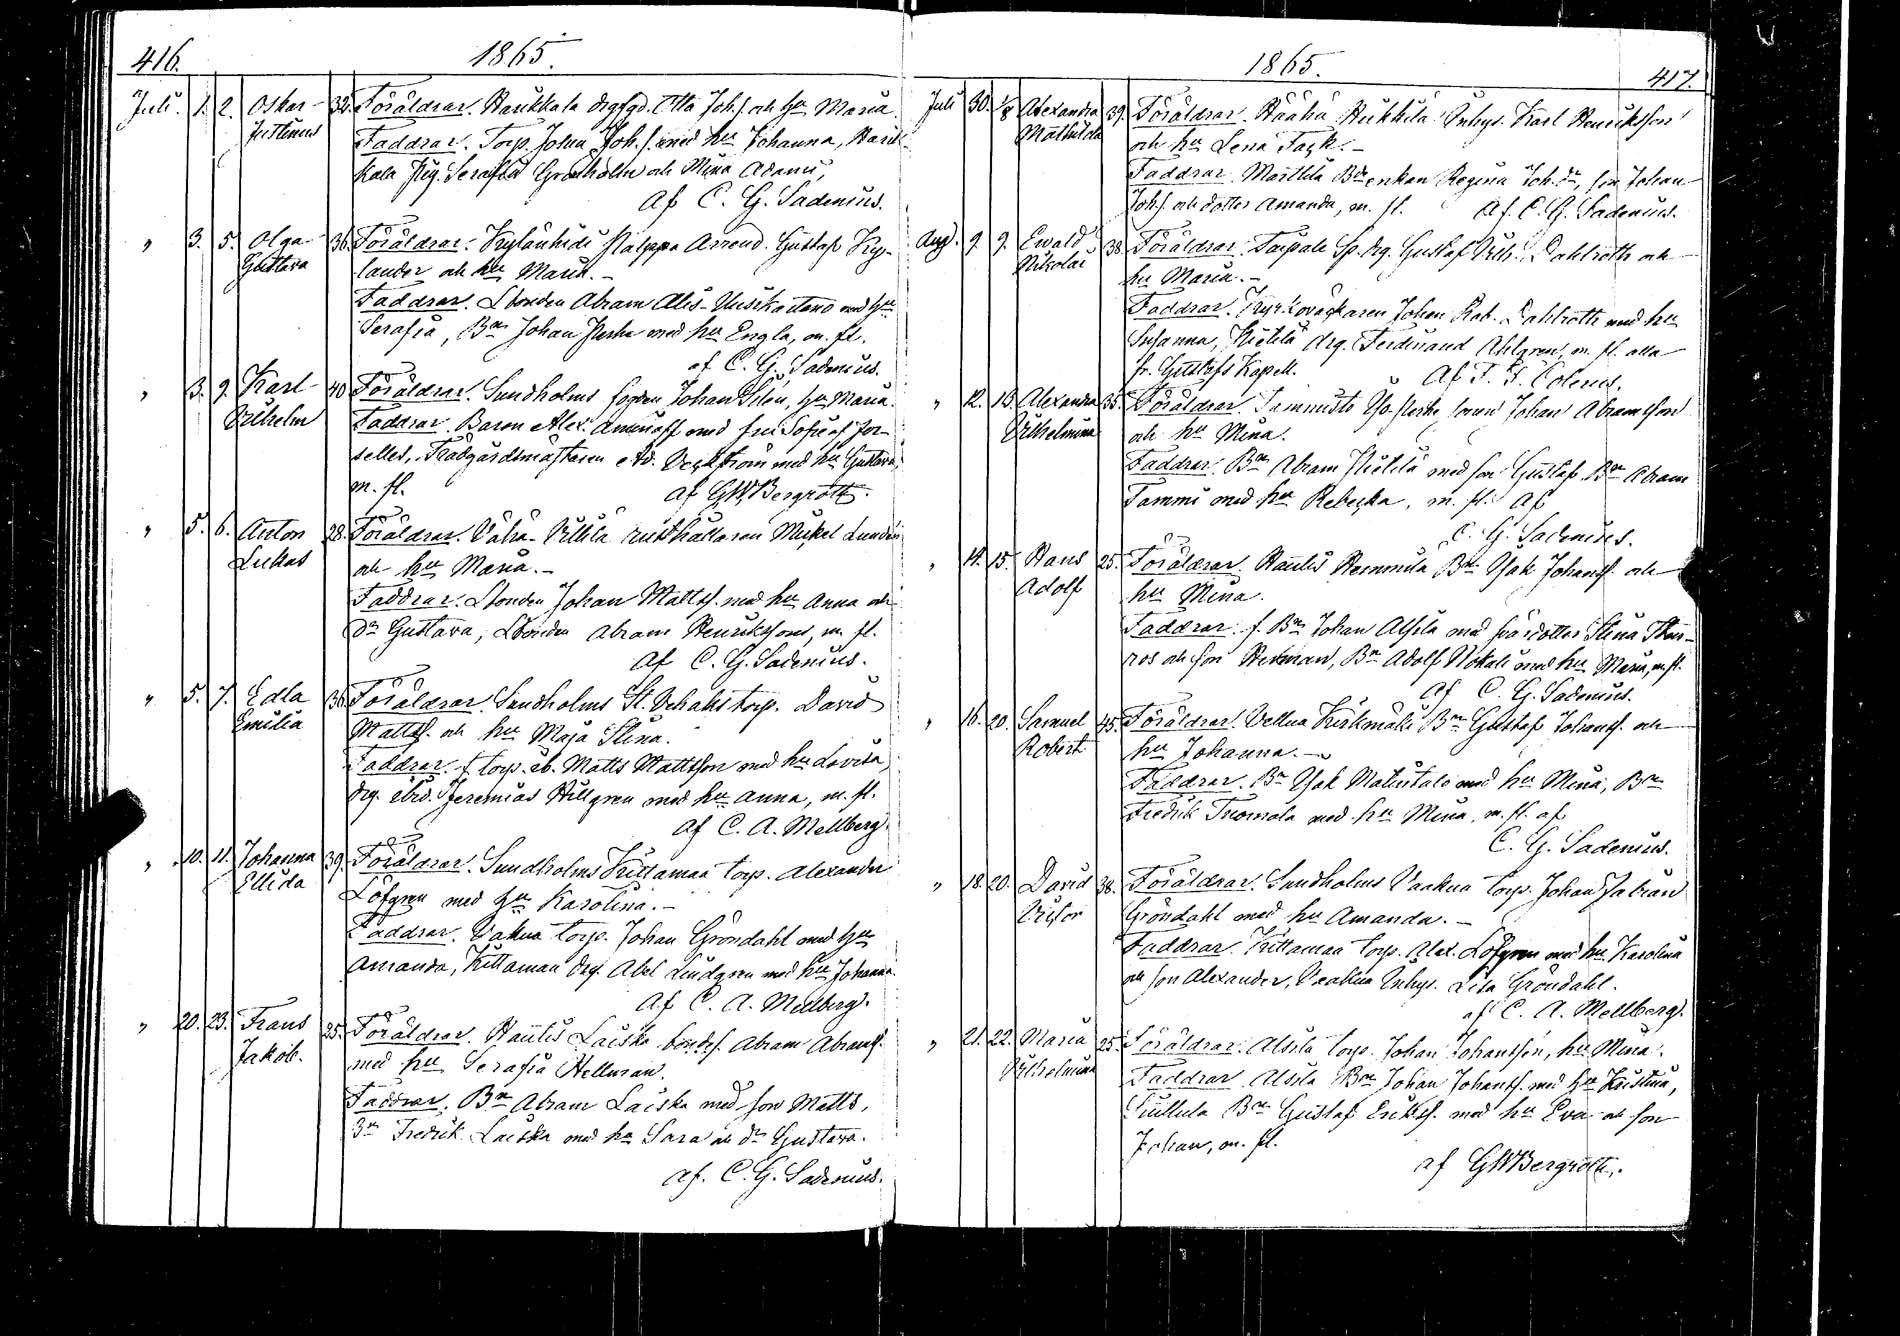 416.
1865.
Juli. 1. 2. Oskar 32. Föräldrar. Haukkala drgfgd. Otto Joh.s. och hu Maria
Justinus Faddrar. Torp. Johan Joh.s. med hu Johanna, Hauk-
kala Pig. Serafia Grönholm och Mina Adams,
af C. G. Sadenius.
" 3. 5. Olga 36. Föräldrar. Arrend. Gustaf Ky-
Gustava lander och hu Maria.-
Faddrar. Lbonden Abram med hu
Serafia, Bn Johan med hu Engla, m. fl.
af C. G. Sadenius.
" 3. 9. Karl 40 Föräldrar. Sundholms fogden Johan Silén, hu Maria.
Vilhelm Faddrar. Baron Alex. Aminoff med fru Sofie af For-
selles, Trädgårdsmästaren Ad. Veckström med hu Gustava,
m. fl. af GWBergroth.
" 5. 6. Anton 28. Föräldrar. Vähä-Villilä rusthållaren Mickel Lundén
Lukas och hu Maria.-
Faddrar. Lbonden Johan Matts. med hu Anna och
dr Gustava, Lbonden Abram Henriksson, m. fl.
af C. G. Sadenius.
" 5. 7. Edla 36. Föräldrar. Sundholms St. torp. David
Emilia Matts. och hu Maja Stina.
Faddrar. f. torp. ib. Matts Mattsson med hu Lovisa,
drg. ibid. Jeremias Hillgren med hu Anna, m. fl.
af C. A. Mellberg.
" 10. 11. Johanna 39. Föräldrar. Sundholms Kittamaa torp. Alexander
Ellida Löfgren med hu Karolina.-
Faddrar. Vakua torp. Johan Gröndahl med hu
Amanda, Kittamaa drg. Abel Lindgren med hu Johanna.
af C. A. Mellberg.
" 20. 23. Frans 25. Föräldrar. Hautis Laiska bondes. Abram Abrams.
Jakob. med hu Serafia Hellman.
Faddrar. Bn Abram Laiska med son Matts,
Bn Fredrik Laiska med hu Sara och dr Gustava.
af. C. G. Sadenius.
1865.
417.
Juli 30. 1/8 Alexandra 39. Föräldrar. Häähä Heikkilä Inhys. Karl Henriksson
Mathilda och hu Lena Tack.-
Faddrar. Mattila Bdeenkan Regina Joh.dr, son Johan
Joh.s. och dotter Amanda, m. fl. af. C. G. Sadenius.
Aug. 9 9. Ewald 38. Föräldrar. Taipale Sp. drg. Gustaf Vilh. Dahlroth och
Nikolai hu Maria.-
Faddrar. Johan Rob. Dahlroth med hu
Susanna, drg. Ferdinand Ahlgren, m. fl. alla
fr. Gustafs Kapell. Af F. F. Colerus.
" 12. 13. Alexandra 35. Föräldrar. Tammisto Johan Abramsson
Vilhelmina och hu Mina.
Faddrar. Bn Abram Hietilä med son Gustaf, Bn Abram
Tammi med hu Rebecka, m. fl. af
C. G. Sadenius.
" 14. 15. Hans 25. Föräldrar. Hautis Hemmilä Bn Isak Johans. och
Adolf hu Mina.
Faddrar. f. Bn Johan Alsila med svärdotter Stina
och son Herman, Bn Adolf Uotali med hu Maria, m. fl.
af C. G. Sadenius.
" 16. 20. Samuel 45. Föräldrar. Vellua Kirkmäki Bn Gustaf Johans. och
Robert hu Johanna.-
Faddrar. Bn Isak Matintalo med hu Mina, Bn
Fredrik Tuomola med hu Mina, m. fl. af
C. G. Sadenius.
" 18. 20. David 38. Föräldrar. Sundholms Vaakua torp. Johan Fabian
Victor Gröndahl med hu Amanda.-
Faddrar. Kittamaa torp. Alex. Löfgren med hu Karolina
och son Alexander, Vaakua Inhys. Lisa Gröndahl.
af C. A. Mellberg.
" 21. 22. Maria 25. Föräldrar. Alsila torp. Johan Johansson, hu Mina.
Vilhelmina Faddrar. Alsila Bn Johan Johans. med hu Kristina,
Bn Gustaf Eriks. med hu Eva och son
Johan, m. fl.
af GWBergroth.